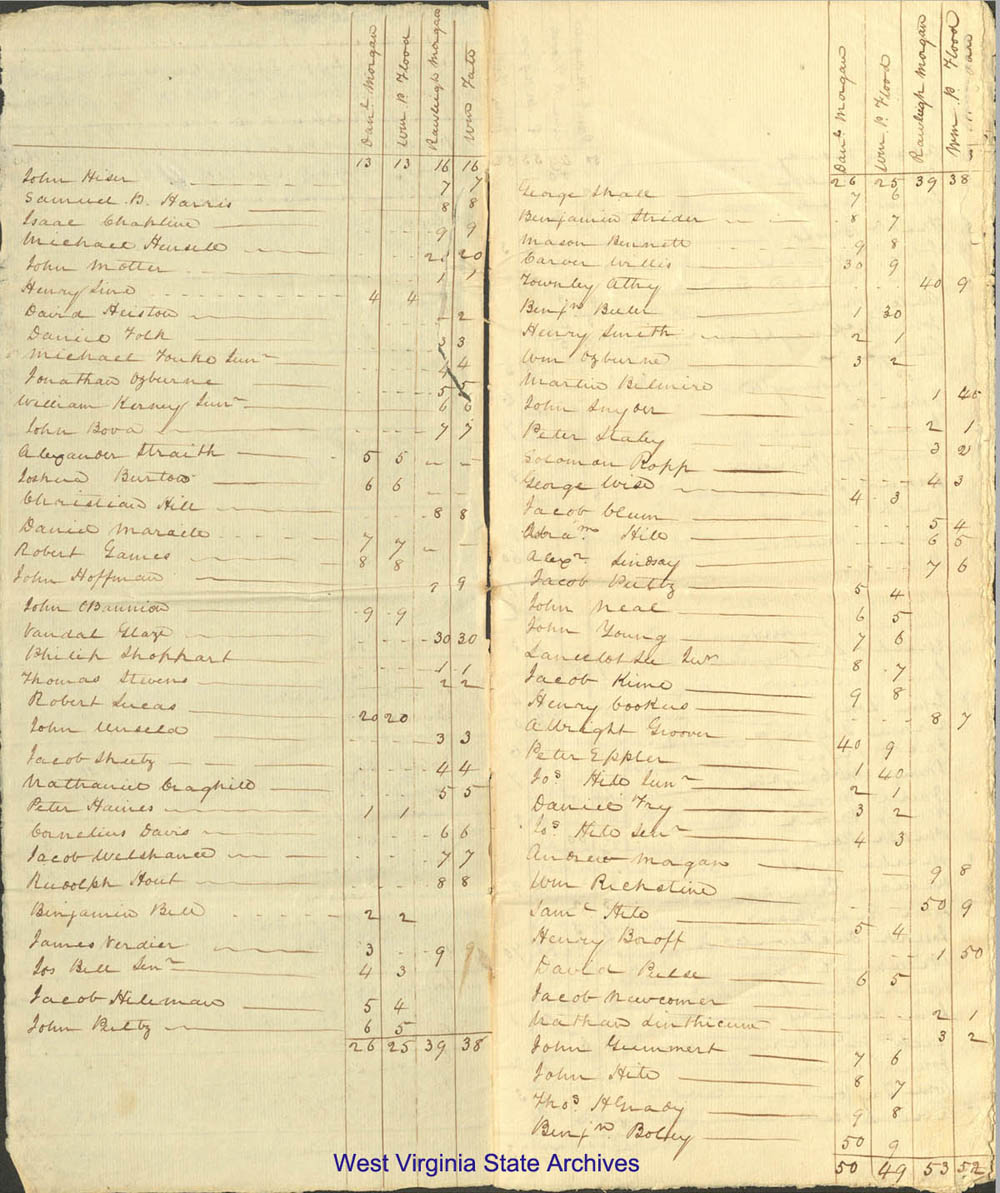 Danl. Morgan
Wm. P. Flood
Rawleigh Morgan
Wm Tate
13 13 16 16
John Hiser 7 7
Samuel B. Harris 8 8
Isaac Chapline 9 9
Michael Hensell 20 20
John Motter 1 1
Henry Line 4 4
David Heistow 2
Daniel Folk 3 3
Michael Fouke Junr 4 4
Jonathan Ozburne 5 5
William Kerney Junr 6 6
John Bova 7 7
Alexander Straith 5 5
Joshua Burton 6 6
Christian Hill 8 8
Daniel Maracle 7 7
Robert Games 8 8
John Hoffman 9 9
John OBannion 9 9
Vandal Glaze 30 30
Philip Shoppart 1 1
Thomas Stevens 2 2
Robert Lucas 20 20
John Unseld 3 3
Jacob Sheetz 4 4
Nathaniel Craghill 5 5
Peter Haines 1 1
Cornelius Davis 6 6
Jacob Welshance 7 7
Rudolph Hout 8 8
Benjamin Bell 2 2
James Verdier 3 9 9
Jos Bell Senr 4 3
Jacob Hileman 5 4
John Peltz 6 5
26 25 39 38
Danl. Morgan
Wm. P. Flood
Rawleigh Morgan
Wm. P. Flood
26 25 39 38
George Shall 7 6
Benjamin Strider 8 7
Mason Bennett 9 8
Carver Willis 30 9
Townley Athy 40 9
Benjn Beeler 1 30
Henry Smith 2 1
Wm Ozburne 3 2
Martin Bilmire 1 40
John Snyder 2 1
Peter Staley 3 2
Solomon Ropp 4 3
George Wise 4 3
Jacob Clum 5 4
Abram Hite 6 5
Alexr Lindsay 7 6
Jacob Peltz 5 4
John Neal 6 5
John Young 7 6
Lancelot Lee Junr 8 7
Jacob Kime 9 8
Henry Cookus 8 7
Allbright Groover 40 9
Peter Eppler 1 40
Jos Hite Junr 2 1
Daniel Fry 3 2
Jos Hite Senr 4 3
Andrew Morgan 9 8
Wm Rickstine 50 9
Saml Hite 5 4
Henry Boroff 1 50
David Pelse 6 5
Jacob Newcomer 2 1
Nathan Linthicum 3 2
John Gummert 7 6
John Hite 8 7
Thos H Grady 9 8
Benjn Boley 50 9
50 49 53 52
West Virginia State Archives